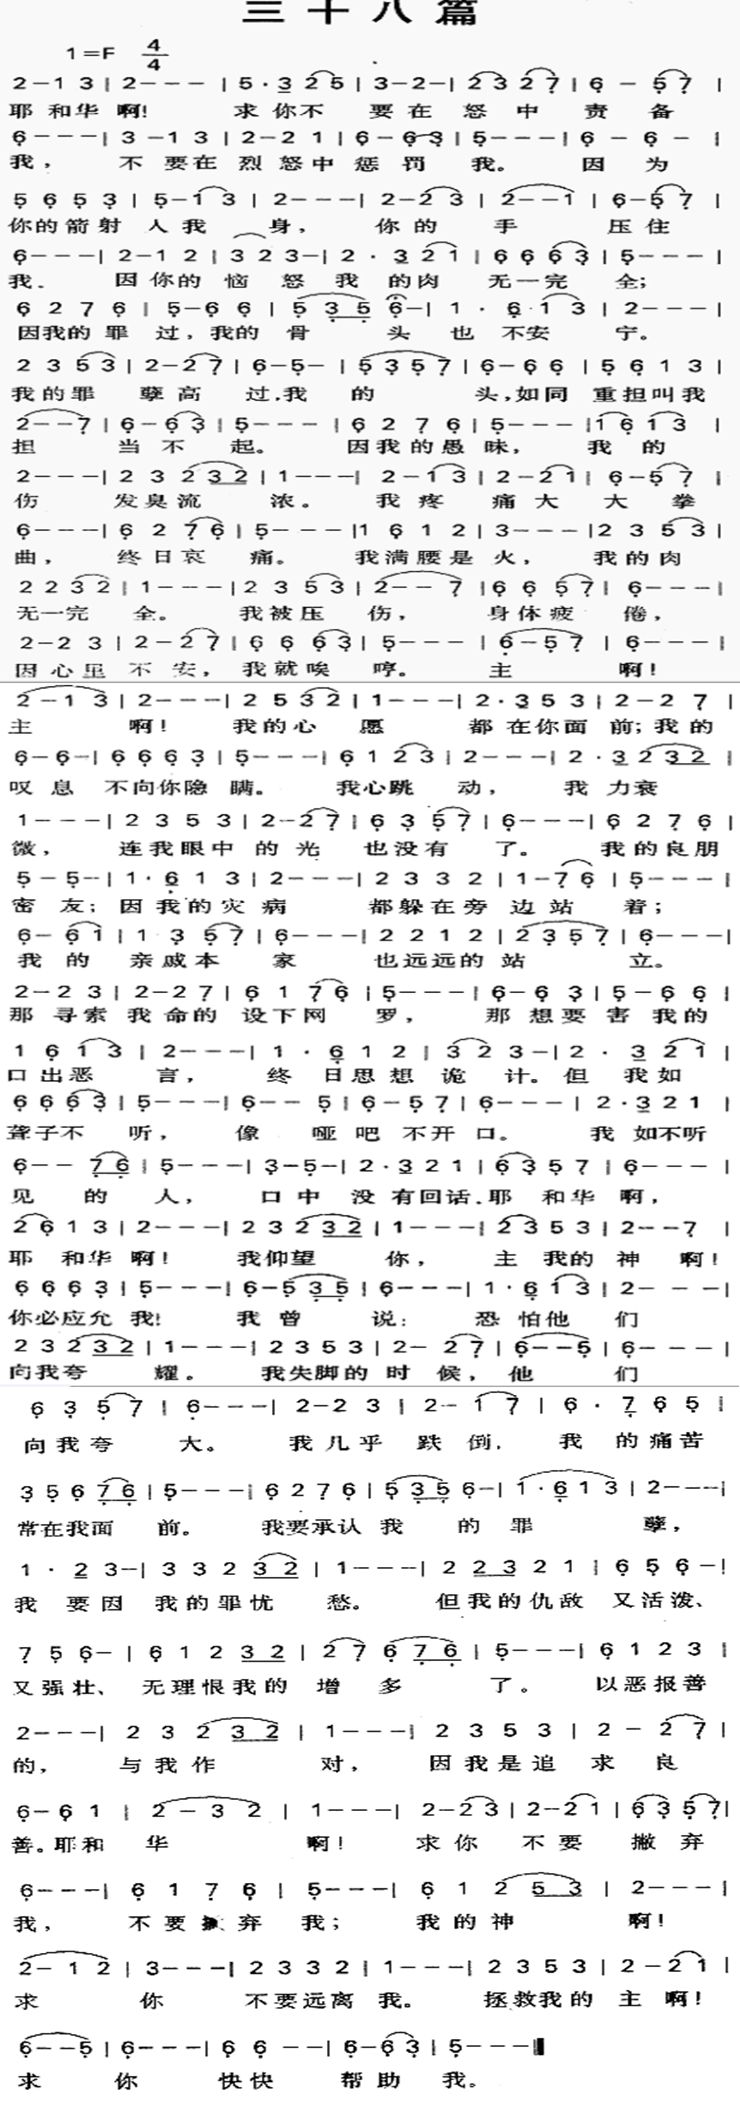 三十八篇
1=F 4/4
2-1 3 | 2--- | 5·3 2 5 | 3-2- | 2 3 2 7 | 6 - 5 7 |
耶 和 华 啊! 求 你 不 要 在 怒 中 责 备
6--- | 3-1 3 | 2-2 1 | 6-6 3 | 5--- | 6-6- |
我, 不 要 在 烈 怒 中 惩 罚 我。 因 为
5 6 5 3 | 5-1 3 | 2--- | 2-2 3 | 2--1 | 6-5 7 |
你的箭射 人我 身, 你的 手 压住
6--- | 2-1 2 | 3 2 3- | 2·3 2 1 | 6 6 6 3 | 5--- |
我. 因你的 恼 怒 我 的肉 无一完 全;
6 2 7 6 | 5-6 6 | 5 3 5 6- | 1·6 1 3 | 2--- |
因我的 罪 过, 我的 骨 头 也 不安 宁。
2 3 5 3 | 2-2 7 | 6-5- | 5 3 5 7 | 6-6 6 | 5 6 1 3 |
我的罪 孽高 过.我 的 头,如同 重担叫我
2--7 | 6-6 3 | 5--- | 6 2 7 6 | 5--- | 1 6 1 3 |
担 当不 起。 因我的愚 昧, 我 的
2--- | 2 3 2 3 2 | 1--- | 2-1 3 | 2-2 1 | 6-5 7 |
伤 发臭流 浓。 我 疼 痛 大 大 拳
6--- | 6 2 7 6 | 5--- | 1 6 1 2 | 3--- | 2 3 5 3 |
曲, 终日哀 痛。 我满腰是 火, 我的肉
2 2 3 2 | 1--- | 2 3 5 3 | 2--7 | 6 6 5 7 | 6--- |
无一完 全。 我被压 伤, 身体疲 倦,
2-2 3 | 2-2 7 | 6 6 6 3 | 5--- | 6-5 7 | 6--- |
因心里 不 安, 我就唉 哼。 主 啊!
2-1 3 | 2--- | 2 5 3 2 | 1--- | 2·3 5 3 | 2-2 7 |
主 啊! 我的心 愿 都在你面 前;我的
6-6- | 6 6 6 3 | 5--- | 6 1 2 3 | 2--- | 2·3 2 3 2 |
叹 息 不向你隐 瞒。 我心跳 动, 我 力衰
1--- | 2 3 5 3 | 2-2 7 | 6 3 5 7 | 6--- | 6 2 7 6 |
微, 连我眼中 的 光 也没有 了。 我的良朋
5-5- | 1·6 1 3 | 2--- | 2 3 3 2 | 1-7 6 | 5--- |
密 友; 因我的灾 病 都躲在旁 边站 着;
6-6 1 | 1 3 5 7 | 6--- | 2 2 1 2 | 2 3 5 7 | 6--- |
我 的 亲戚本 家 也远远的 站 立。
2-2 3 | 2-2 7 | 6 1 7 6 | 5--- | 6-6 3 | 5-6 6 |
那 寻索 我 命的 设下网 罗, 那 想要 害 我的
1 6 1 3 | 2--- | 1·6 1 2 | 3 2 3- | 2·3 2 1 |
口出恶 言, 终 日思想 诡 计。但 我如
6 6 6 3 | 5--- | 6-- 5 | 6-5 7 | 6--- | 2·3 2 1 |
聋子不 听, 像 哑 吧 不开 口。 我 如不听
6-- 7 6 | 5--- | 3-5- | 2·3 2 1 | 6 3 5 7 | 6--- |
见 的 人, 口中 没 有回话.耶 和华 啊,
2 6 1 3 | 2--- | 2 3 2 3 2 | 1--- | 2 3 5 3 | 2--7 |
耶 和华 啊! 我仰望 你, 主 我的 神 啊!
6 6 6 3 | 5--- | 6-5 3 5 | 6--- | 1·6 1 3 | 2--- |
你必应允 我! 我曾 说: 恐 怕他 们
2 3 2 3 2 | 1--- | 2 3 5 3 | 2-2 7 | 6--5 | 6--- |
向我夸 耀。 我失脚的 时 候, 他 们
6 3 5 7 | 6--- | 2-2 3 | 2-1 7 | 6·7 6 5 |
向我夸 大。 我几乎 跌 倒. 我 的痛苦
3 5 6 7 6 | 5--- | 6 2 7 6 | 5 3 5 6- | 1·6 1 3 | 2--- |
常在我面 前。 我要承认 我 的 罪 孽,
1·2 3- | 3 3 2 3 2 | 1--- | 2 2 3 2 1 | 6 5 6- |
我 要因 我的罪忧 愁。 但我的仇敌 又活泼、
7 5 6- | 6 1 2 3 2 | 2 7 6 7 6 | 5--- | 6 1 2 3 |
又强壮、 无理恨我的 增 多 了。 以恶报善
2--- | 2 3 2 3 2 | 1--- | 2 3 5 3 | 2-2 7 |
的, 与我作 对, 因我是追 求 良
6-6 1 | 2-3 2 | 1--- | 2-2 3 | 2-2 1 | 6 3 5 7 |
善。耶和 华 啊! 求你 不要 撇弃
6--- | 6 1 7 6 | 5--- | 6 1 2 5 3 | 2--- |
我, 不要 弃 我; 我的神 啊!
2-1 2 | 3--- | 2 3 3 2 | 1--- | 2 3 5 3 | 2-2 1 |
求 你 不要远离 我。 拯救我的 主 啊!
6--5 | 6--- | 6 6 -- | 6-6 3 | 5---‖
求 你 快快 帮助 我。